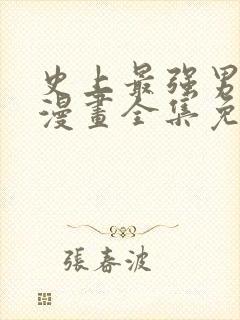 史上最强男
漫畫全集免
張春波